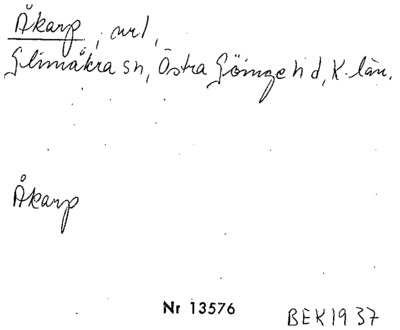 Åkarp, url,
Glimåkra sn, Östra Göinge hd, K-län.
Åkarp
Nr 13576
BEK1937